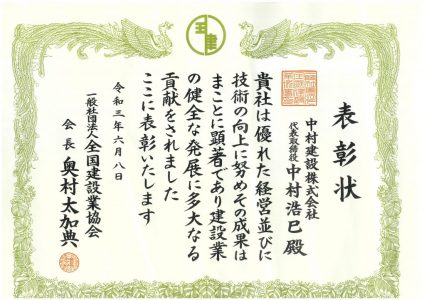 表彰状
中村建設株式会社
代表取締役 中村浩巳 殿
貴社は優れた経営並びに
技術の向上に努めその成果は
まことに顕著であり建設業
の健全な発展に多大なる
貢献をされました
ここに表彰いたします
令和三年六月八日
一般社団法人全国建設業協会
会長 奥村太加典